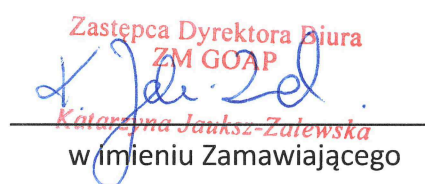 Zastępca Dyrektora Biura
ZM GOAP
Katarzyna Jauksz-Zalewska
w imieniu Zamawiającego